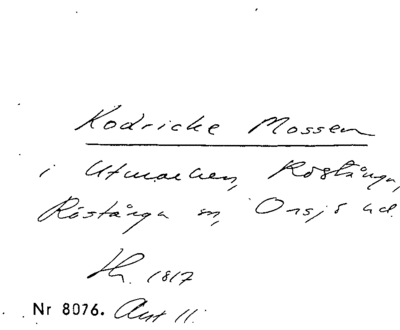 Kodricke Mossen
i Utmarken, Röstånga,
Röstånga sn, Onsjö hd.
Th. 1817
Nr 8076. Ant 11.